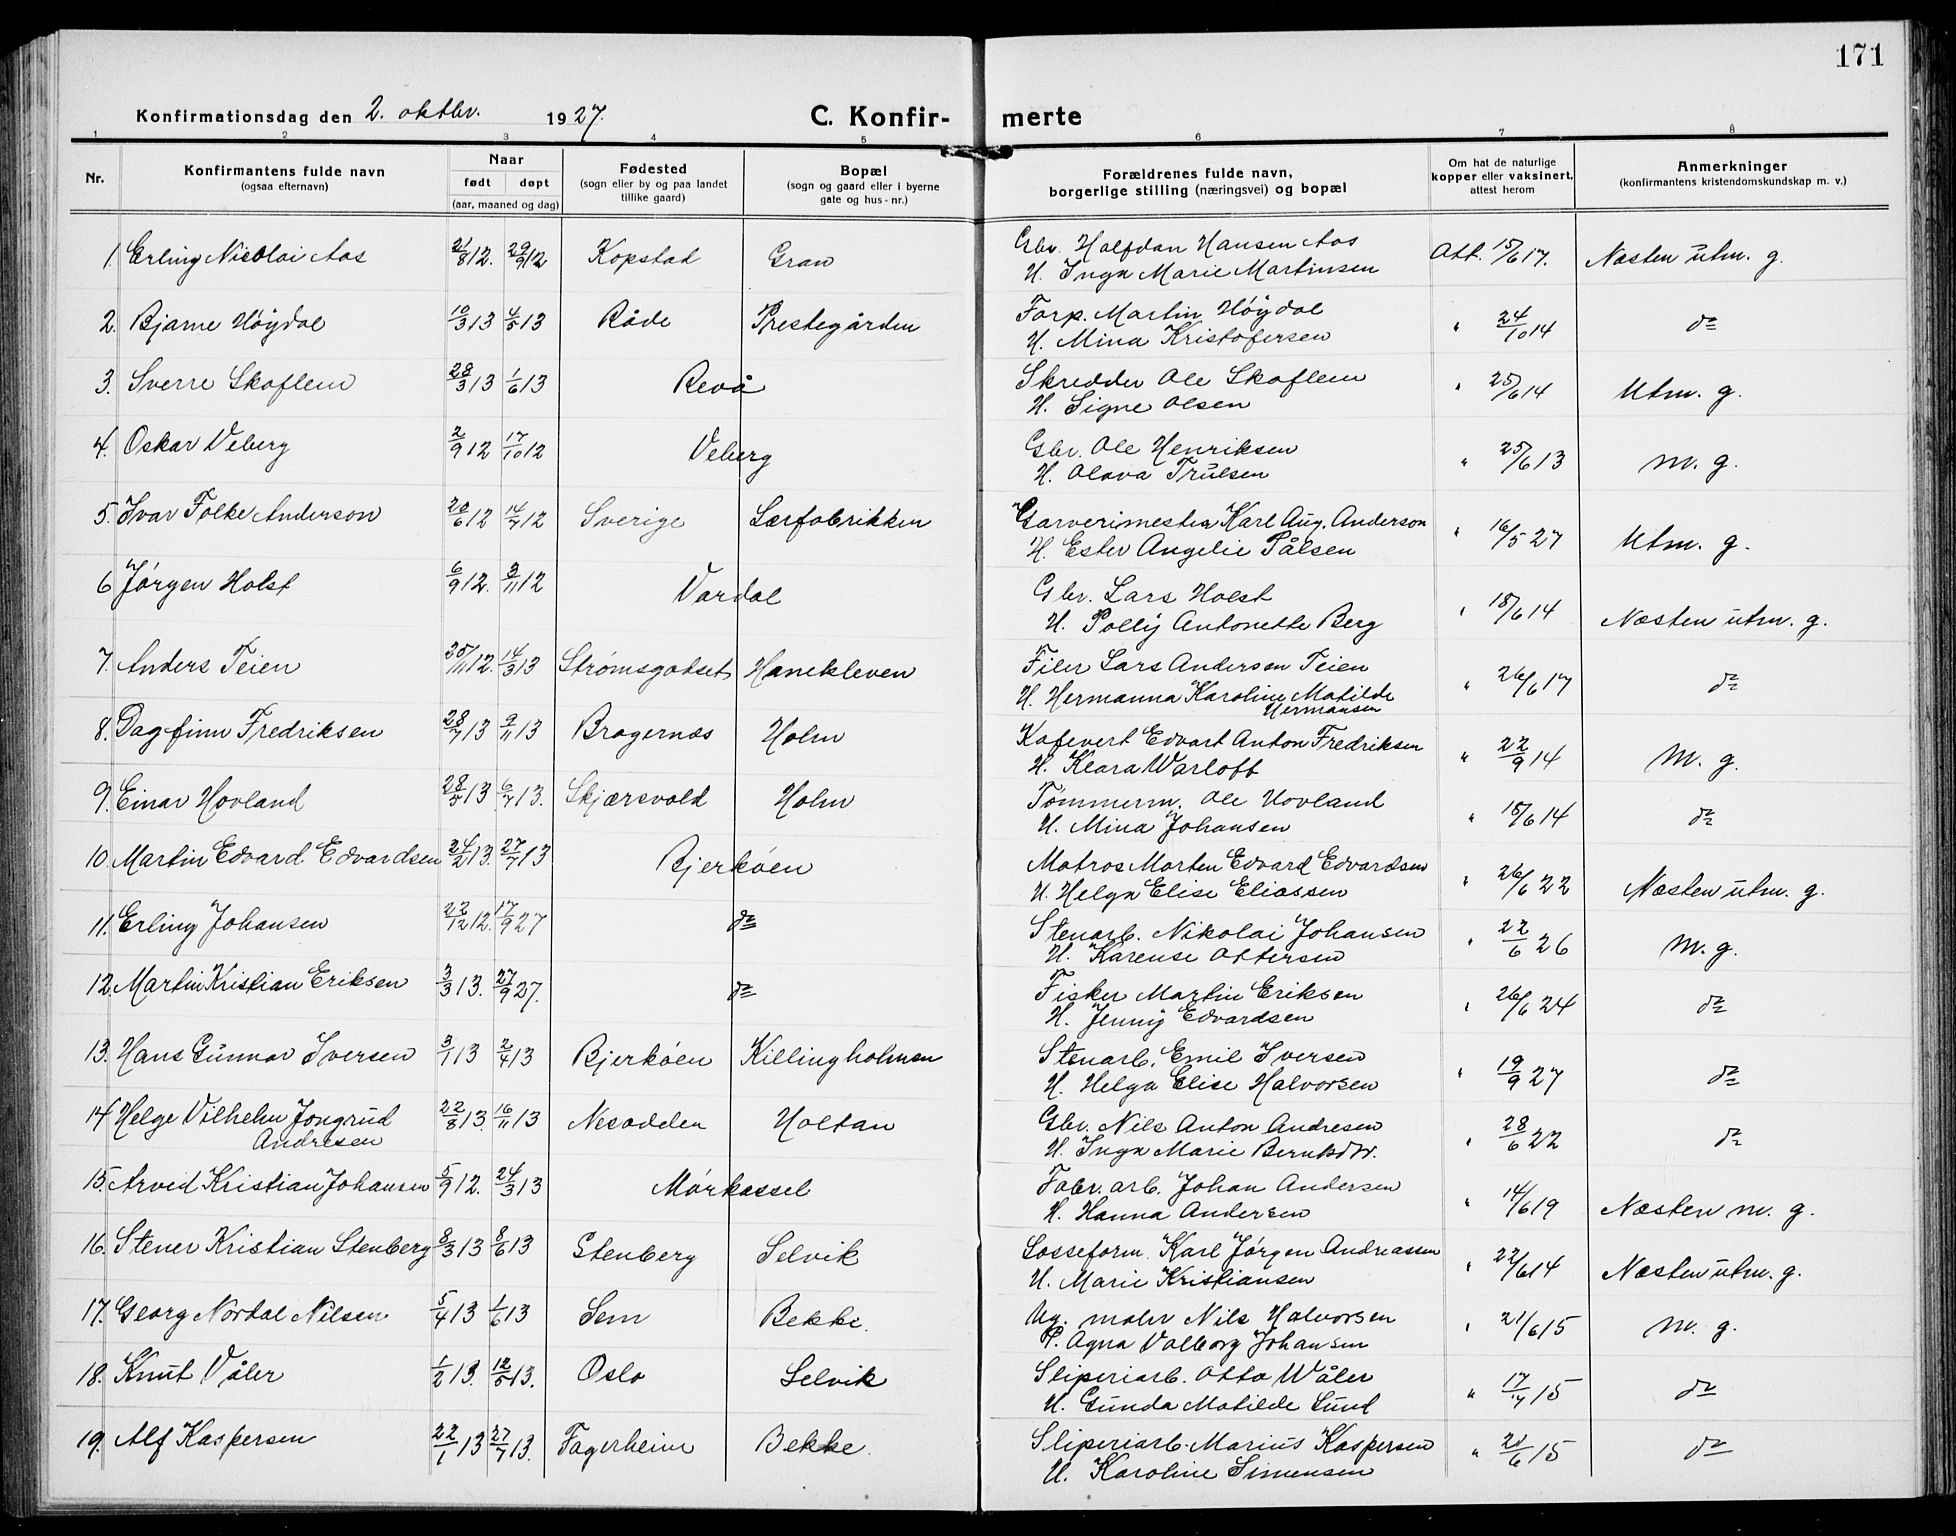 171
Konfirmationsdag den 2. oktbr. 1927. C. Konfirmerte
1 2 3 4 5 6 7 8
Nr. Konfirmantens fulde navn (ogsaa efternavn) Naar født døpt (aar, maaned og dag) Fødested (sogn eller by og paa landet tillike gaard) Bopæl (sogn og gaard eller i byerne gate og hus-nr.) Forældrenes fulde navn, borgerlige stilling (næringsvei) og bopæl Om hat de naturlige kopper eller vaksinert, attest herom Anmerkninger (konfirmantens kristendomskundskap m. v.)
1. Erling Nicolai Aas 21/8 12. 29/9 12 Kopstad Gran Gbr. Halfdan Hansen Aas Att. 15/6 17. Næsten utm. g.
H. Inga Marie Martinsen
2. Bjarne Høydal 10/3 13 4/5 13 Råde Prestegården Forp. Martin Høydal " 24/10 14 do
H. Mina Kristofersen
3. Sverre Skaflem 28/3 13 1/6 13 Revå Skredder Ole Skaflem " 25/6 14 Utm. g.
H. Signe Olsen
4. Oskar Veberg 2/9 12 17/10 12 Veberg Gbr. Ole Henriksen " 25/6 13 M. g.
H. Olava Trulsen
5. Ivar Folke Anderson 20/6 12 14/7 12 Sverige Lærfabrikken Garverimester Karl Aug. Anderson " 16/5 27 Utm. g.
H. Ester Angelie Pålsen
6 Jørgen Holst 6/9 12. 3/11 12 Vardal Gbr. Lars Holst " 18/6 14 Næsten utm. g.
H. Polly Antonette Berg
7. Anders Teien 25/11 12. 14/3 13 Strømsgodset Hanekleven Filer Lars Andersen Teien " 26/6 17 do
H. Hermanna Karoline Matilde
Hermansen
8. Dagfinn Fredriksen 28/7 13 9/11 13 Bragernæs Holm Kafevert Edvart Anton Fredriksen " 22/9 14 M. g.
H. Klara Warloff
9. Einar Hovland 28/5 13 6/7 13. Skjærsvold Holm Tømmerm. Ole Hovland " 18/6 14 do
H. Mina Johansen
10. Martin Edvard Edvardsen 24/2 13. 27/7 13 Bjerkøen Matros Morten Edvard Edvardsen " 26/6 22 Næsten utm. g.
H. Helga Elise Eliassen
11. Erling Johansen 22/12 12. 17/9 27 do Stenarb. Nikolai Johansen " 22/6 26 M. g.
H. Karense Ottersen
12. Martin Kristian Eriksen 3/3 13. 27/9 27. do Fisker Martin Eriksen " 26/6 24 do
H. Jenny Edvardsen
13. Hans Gunnar Iversen 3/1 13 2/4 13 Bjerkøen Killingholmen Stenarb. Emil Iversen " 19/9 27 do
H. Helga Elise Halvorsen
14 Helge Vilhelm Jongrud 22/8 13. 16/11 13 Nesodden Holtan Gbr. Nils Anton Andresen " 28/6 22 do
Andresen H. Inga Marie Berntsdtr.
15. Arvid Kristian Johansen 5/9 12. 24/3 13 Mørkassel Fabr. arb. Johan Andersen " 14/6 19 Næsten m. g.
H. Hanna Andersen
16. Stener Kristian Stenberg 8/3 13 8/6 13 Stenberg Selvik Losseform. Karl Jørgen Andreassen " 22/6 14 Næsten utm. g.
H. Marie Kristiansen
17. Georg Nordal Nilsen 5/4 13 1/6 13 Sem Bekke. Ug. maler Nils Halvorsen " 21/6 15 M. g.
P. Agna Valborg Johansen
18. Knut Våler 1/2 13. 12/5 13. Oslo Selvik Sliperiarb. Otto Wåler " 17/7 15 do
H. Gunda Matilde Lund
19. Alf Kaspersen 22/1 13 27/7 13. Fagerheim Bekke. Sliperiarb. Marius Kaspersen " 21/6 15 do
H. Karoline Simensen